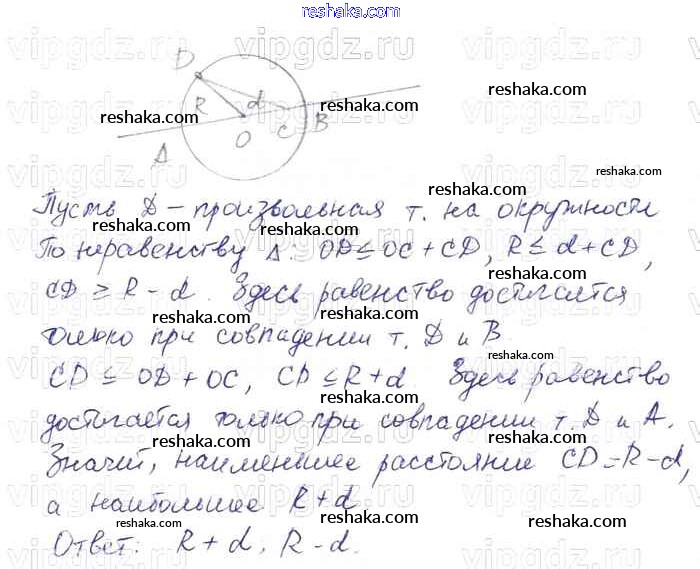 reshaka.com
vipgdz.ru vipgdz.ru
reshaka.com
D
reshaka.com
R d
reshaka.com
O C B
A
reshaka.com
vipgdz.ru vipgdz.ru
Пусть D – произвольная т. на окружности
reshaka.com
По неравенству Δ. OD ≤ OC + CD, R ≤ d + CD,
reshaka.com
CD ≥ R – d. Здесь равенство достигается
reshaka.com
только при совпадении т. D и B
reshaka.com
CD ≤ OD + OC, CD ≤ R + d. Здесь равенство
reshaka.com
достигается только при совпадении т. D и A.
reshaka.com
Значит, наименьшее расстояние CD = R – d,
reshaka.com
а наибольшее R + d
reshaka.com
Ответ: R + d, R – d.
reshaka.com